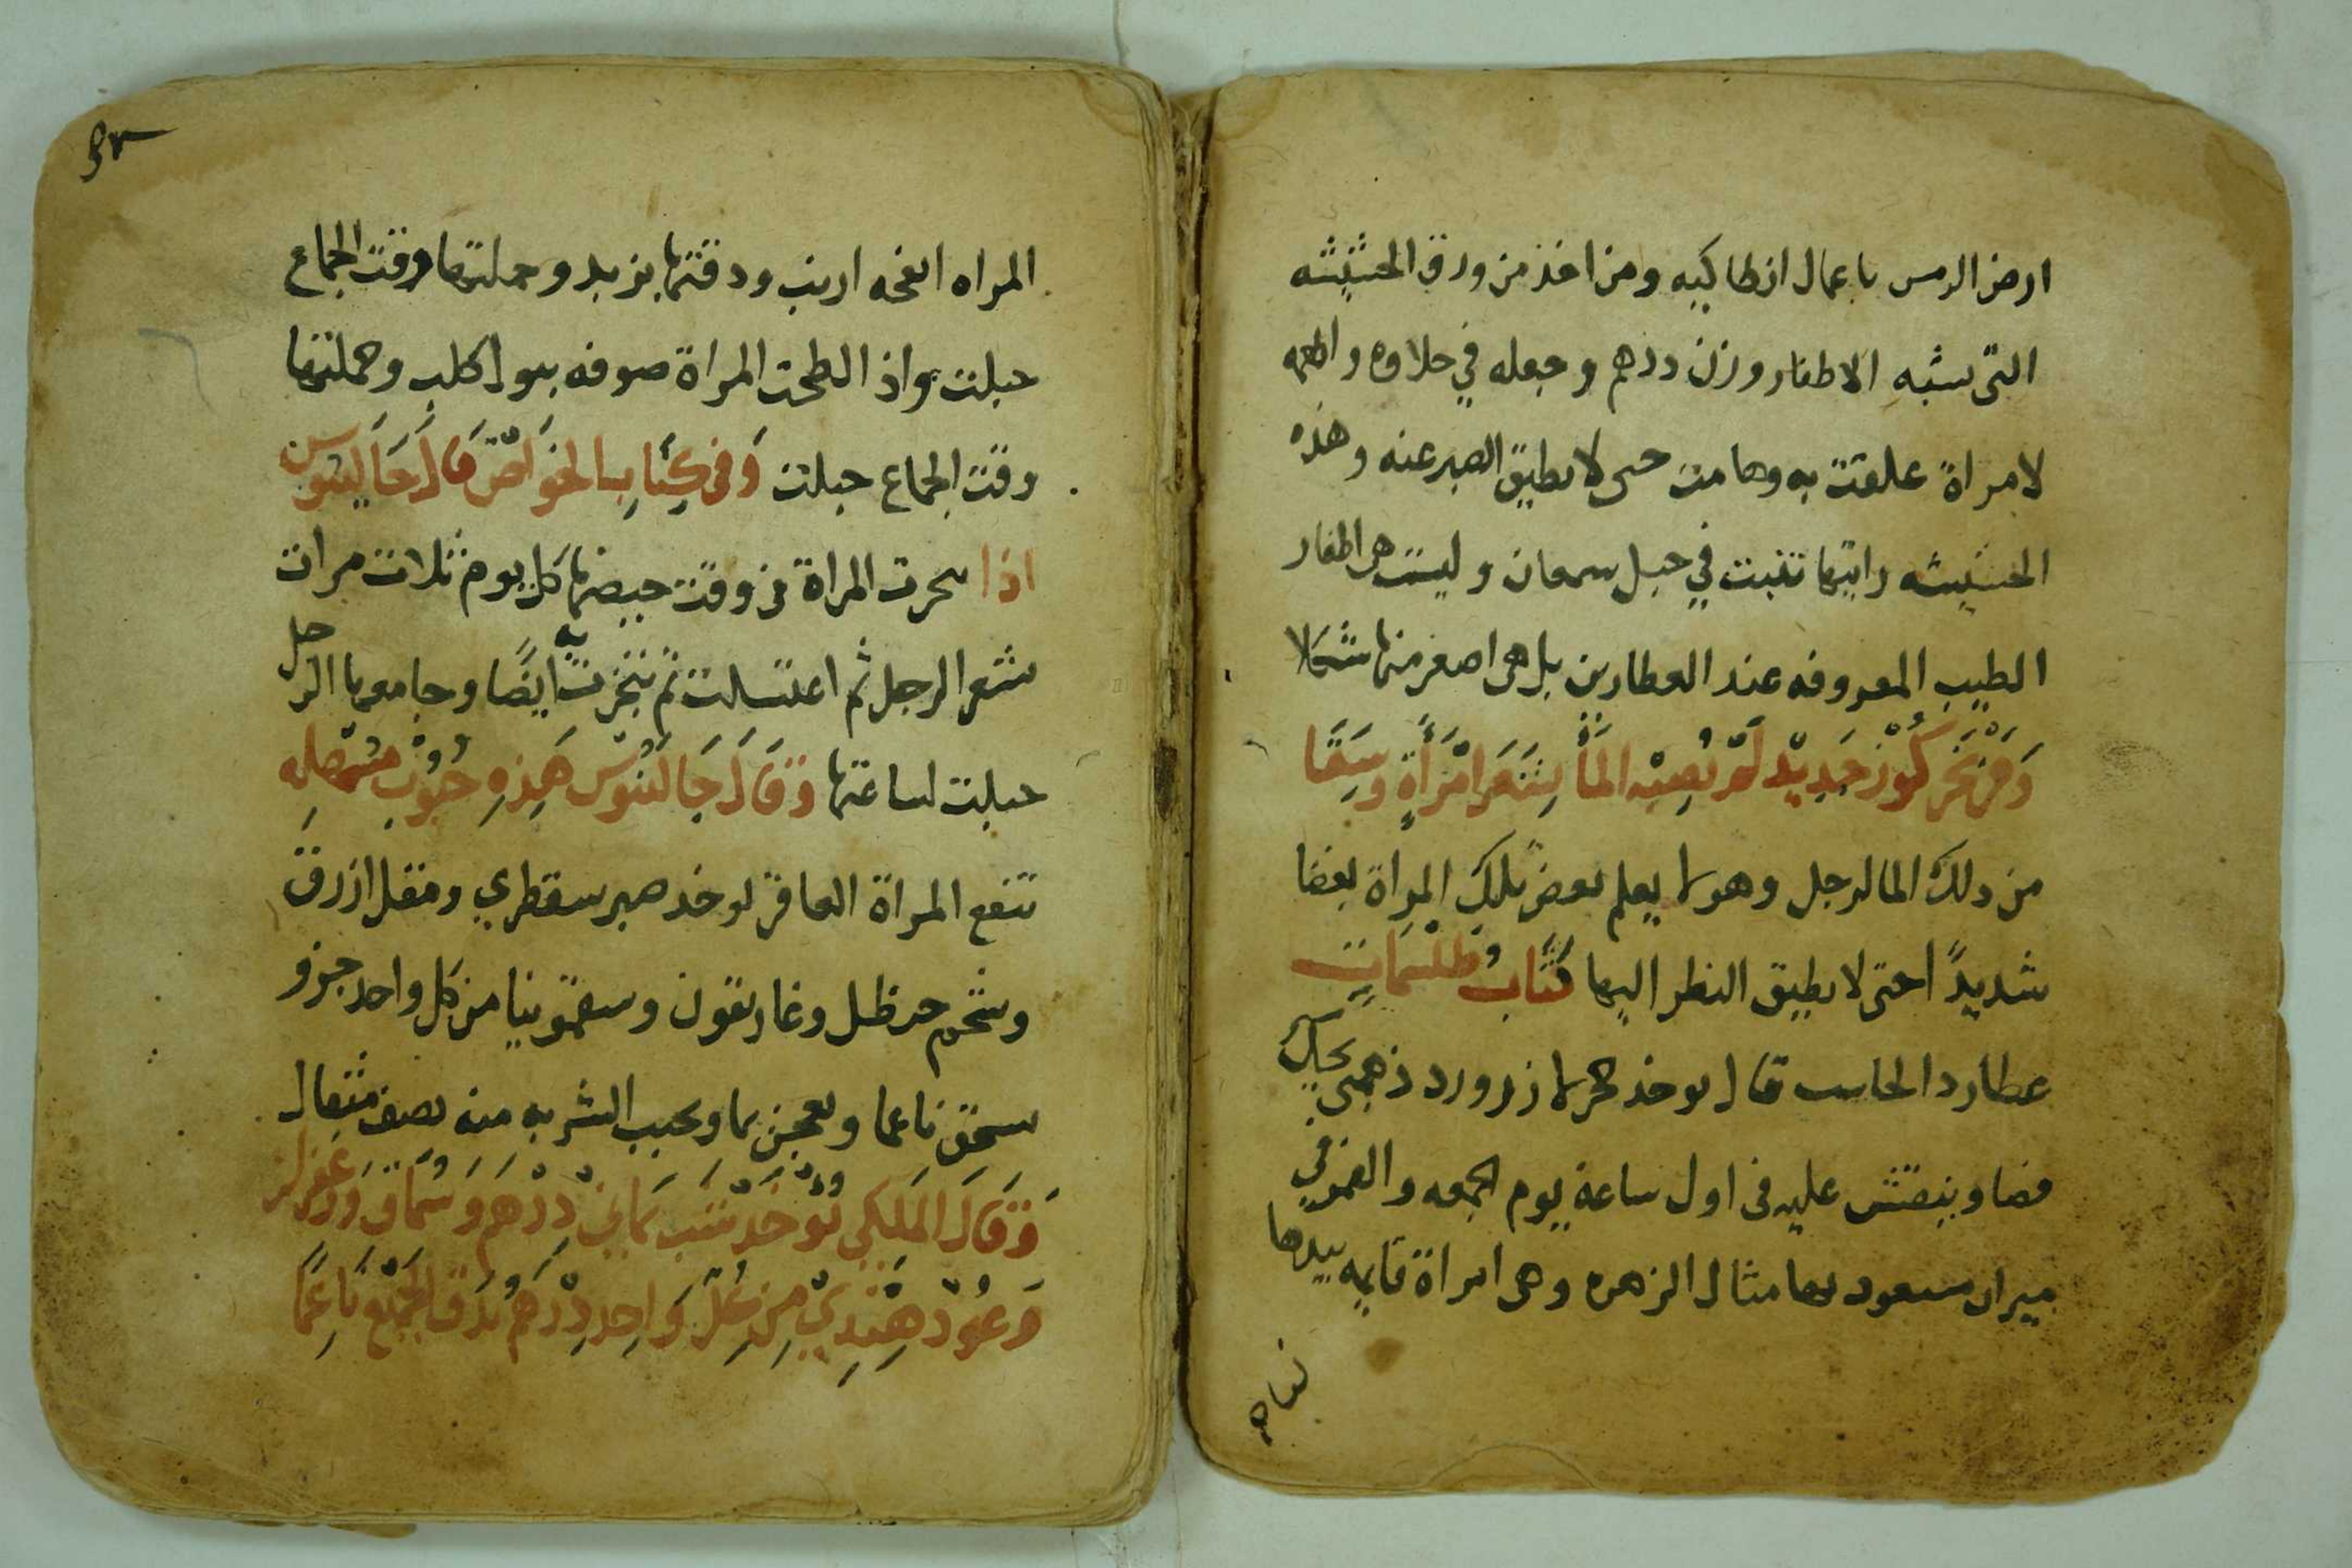 ارض الرمس باعمال انطاكيه ومن اخذ من ورق الحشيشه
التى تشبه الاظفار وزن درهم وجعله في حلاوه واطعمه
لامراة علقت به وهامت حتى لا تطيق الصبر عنه وهذه
الحشيشه رايتها تنبت في جبل سمعان وليست هى اظفار
الطيب المعروفه عند العطارين بل هى اصغر منها شكلا
وَمَن بَخَّر كُوْز جَدِيْد لَمْ يُصِبْه المَأ بِشَعَر امْرَأةٍ وسَقَا
من ذلك الما لرجل وهو لا يعلم بغض تلك المراة بغضا
شديدًا حتى لا يطيق النظر اليها كتَاب طلسمَات
عطارد الحاسب قال يوخذ حجر لازورد ذهبى يحك
فصا وينقش عليه فى اول ساعة يوم الجمعه والقمر في
ميزان مسعود بها مثال الزهره وهى امراة قايمه بيدها
المراه انفحه ارنب ودفتها بزبد وحملتها وقت الجماع
حبلت واذا لطخت المراة صوفه ببول كلب وحملتها
وقت الجماع حبلت وَفى كِتَابِ الخوَاصّ قَالَ جَالينوس
اذا بخرت المراة فى وقت حيضها كل يوم ثلاث مرات
بشعر الرجل ثم اغتسلت ثم تبخرت به ايضًا وجامعها الرجل
حبلت لساعتها وَقَالَ جَالينُوس هَذِهِ حُبُوْب مُسْهِله
تنفع المراة العاقر يوخذ صبر سقطري ومقل ازرق
وشحم حنظل وغاريقون وسقمونيا من كل واحد جزو
يسحق ناعما ويعجن بما ويحبب الشربه منه نصف مثقال
وَقَالَ المَلَكِي يُؤْخَذ شَب يَمَانِي دِرْهَم وَسُمَاق وَزعْفرَان
وَعُوْد هِنْدِيّ مِنْ كُلِّ وَاحِد دِرْهَم يُدَق الجَمْيْع نَاعِمًا